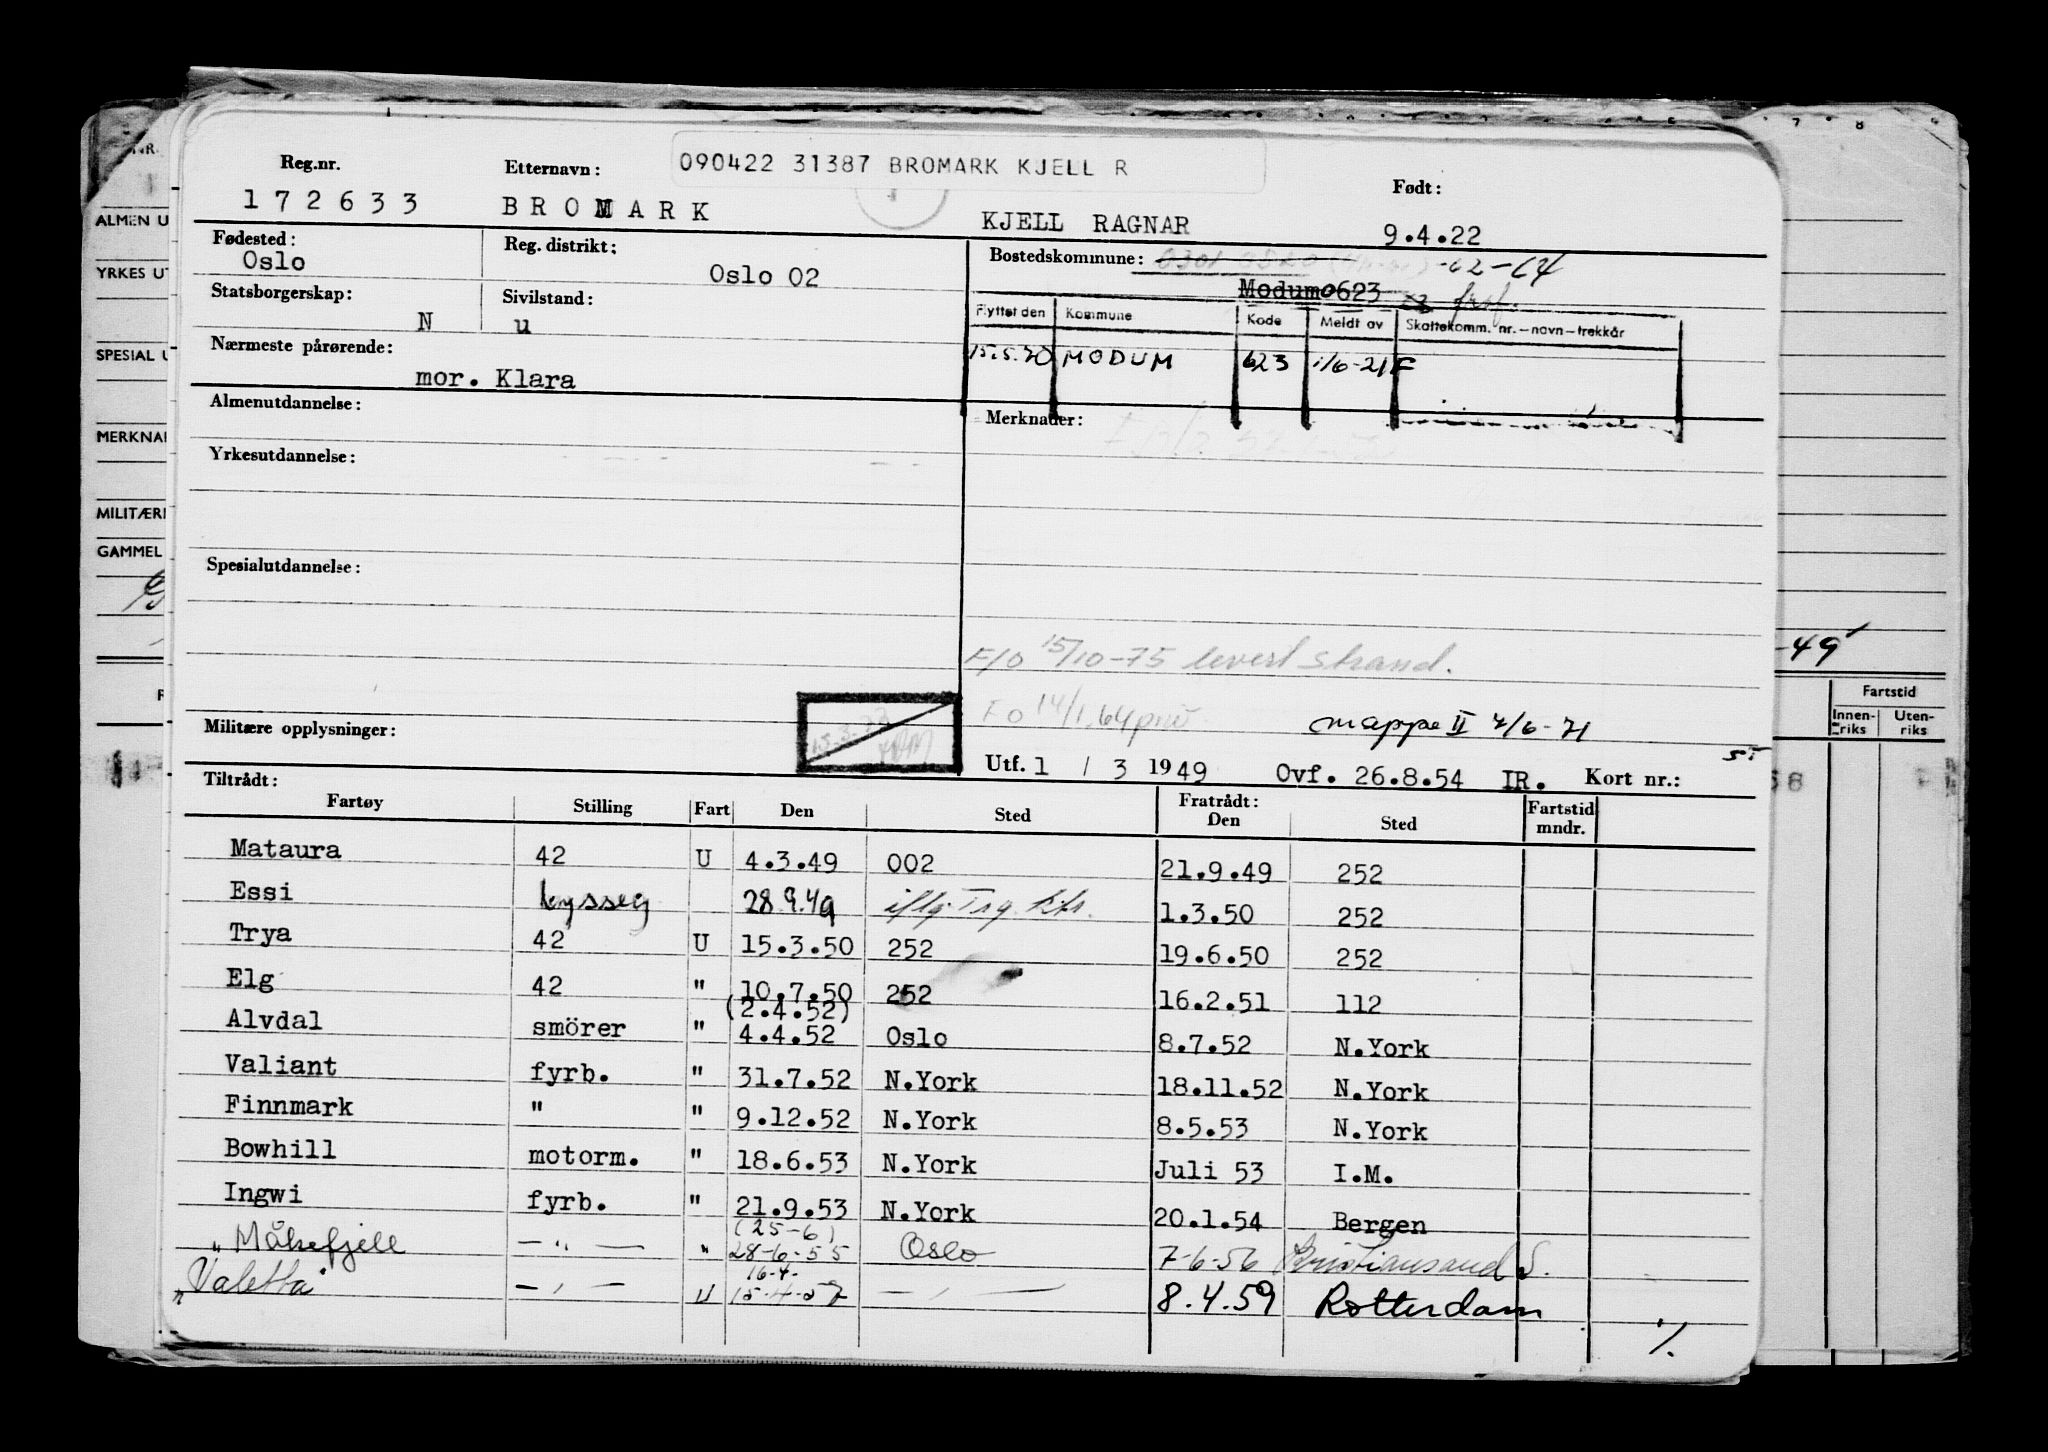 090422 31387 BROMARK KJELL R
Reg.nr. Etternavn: Født:
172633 BROMARK KJELL RAGNAR 9.4.22
Fødested: Reg. distrikt: Bostedskommune: -62-64
Oslo Oslo 02
Modum 0623
Statsborgerskap: Sivilstand:
N u
Flyttet den Kommune Kode Meldt av Skattekomm. nr.-navn-trekkår
15.5.70 MODUM 623 1/6-71 F
Nærmeste pårørende:
mor. Klara
Almenutdannelse: Merknader:
Yrkesutdannelse:
Spesialutdannelse:
F/O 15/10-75 levert strand.
FO 14/1.64
mappe II 7/6-71
Militære opplysninger:
Utf. 1 / 3 1949 Ovf. 26.8.54 IR. Kort nr.:
Tiltrådt: Fratrådt:
Fartøy Stilling Fart Den Sted Den Sted Fartstid mndr.
Mataura 42 U 4.3.49 002 21.9.49 252
Essi 28.9.49 1.3.50 252
Trya 42 U 15.3.50 252 19.6.50 252
Elg 42 " 10.7.50 252 16.2.51 112
(2.4.52)
Alvdal smörer " 4.4.52 Oslo 8.7.52 N.York
Valiant fyrb. " 31.7.52 N.York 18.11.52 N.York
Finnmark " " 9.12.52 N.York 8.5.53 N.York
Bowhill motorm. " 18.6.53 N.York Juli 53 I.M.
Ingwi fyrb. " 21.9.53 N.York 20.1.54 Bergen
(25-6)
" Måkefjell — " — " 28-6-55 Oslo 7-6-56 Kristiansand S.
16-4-
" Valetta — " — U 15-4-57 — " — 8.4.59 Rotterdam
%
ALMEN U
YRKES UT
SPESIAL U
MERKNA
MILITÆR
GAMMEL
-49
Fartstid
Innen-riks Uten-riks